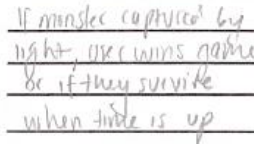 If monster captured by
light, user wins game
or if they survive
when time is up